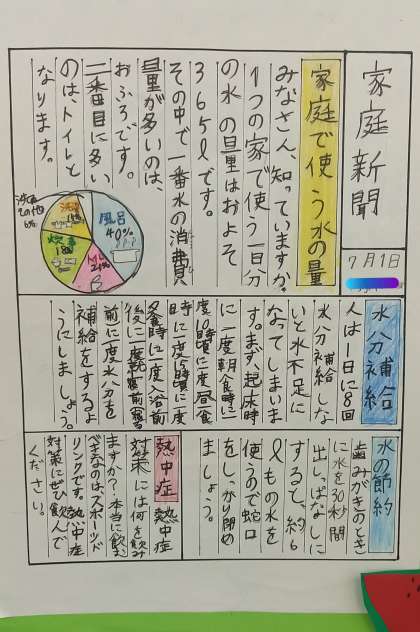 家庭新聞
7月1日
家庭で使う水の量
みなさん、知っていますか。
1つの家で使う一日分
の水の量はおよそ
365ℓです。
その中で一番水の消費
量が多いのは、
おふろです。
二番目に多い
のは、トイレと
なります。
風呂
40%
トイレ
21%
炊事
18%
洗濯
15%
洗面
その他
6%
水分補給
人は1日に8回
水分補給しな
いと水不足に
なってしまいま
す。まず起床時
に一度朝食時に一
度10時頃に一度昼食
時に一度15時頃に一度
夕食時に一度入浴前
後に一度就寝前
前に一度水分を
補給をするよ
うにしましょう。
水の節約
歯みがきのとき
に水を30秒間
出しっぱなしに
すると、約6
ℓもの水を
使うので蛇口
をしっかり閉め
ましょう。
熱中症
熱中症
対策には何を飲み
ますか?本当に飲む
べきなのは、スポーツド
リンクです。熱中症
対策にぜひ飲んで
ください。